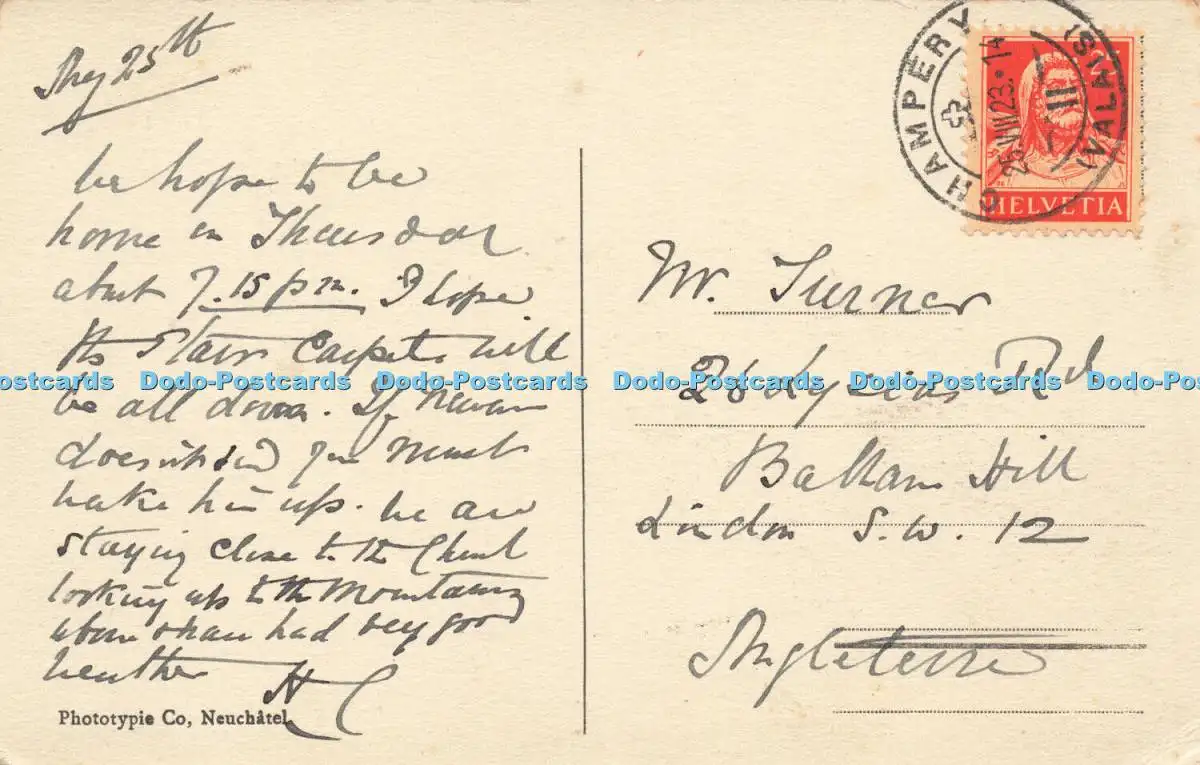 Aug 25th
We hope to be
home on Thursday
about 7.15 pm. I hope
the Stair Carpets will
be all down. If
doesn't send you must
wake him up. We are
staying close to the Church
looking up to the Mountains
above & have had very good
weather H C
Phototypie Co, Neuchâtel
CHAMPÉRY (VALAIS)
25.VIII.23.-14
HELVETIA
Mr. Turner
26 Lysias Rd
Balham Hill
London S.W. 12
Angleterre
Dodo-Postcards Dodo-Postcards Dodo-Postcards Dodo-Postcards Dodo-Postcards